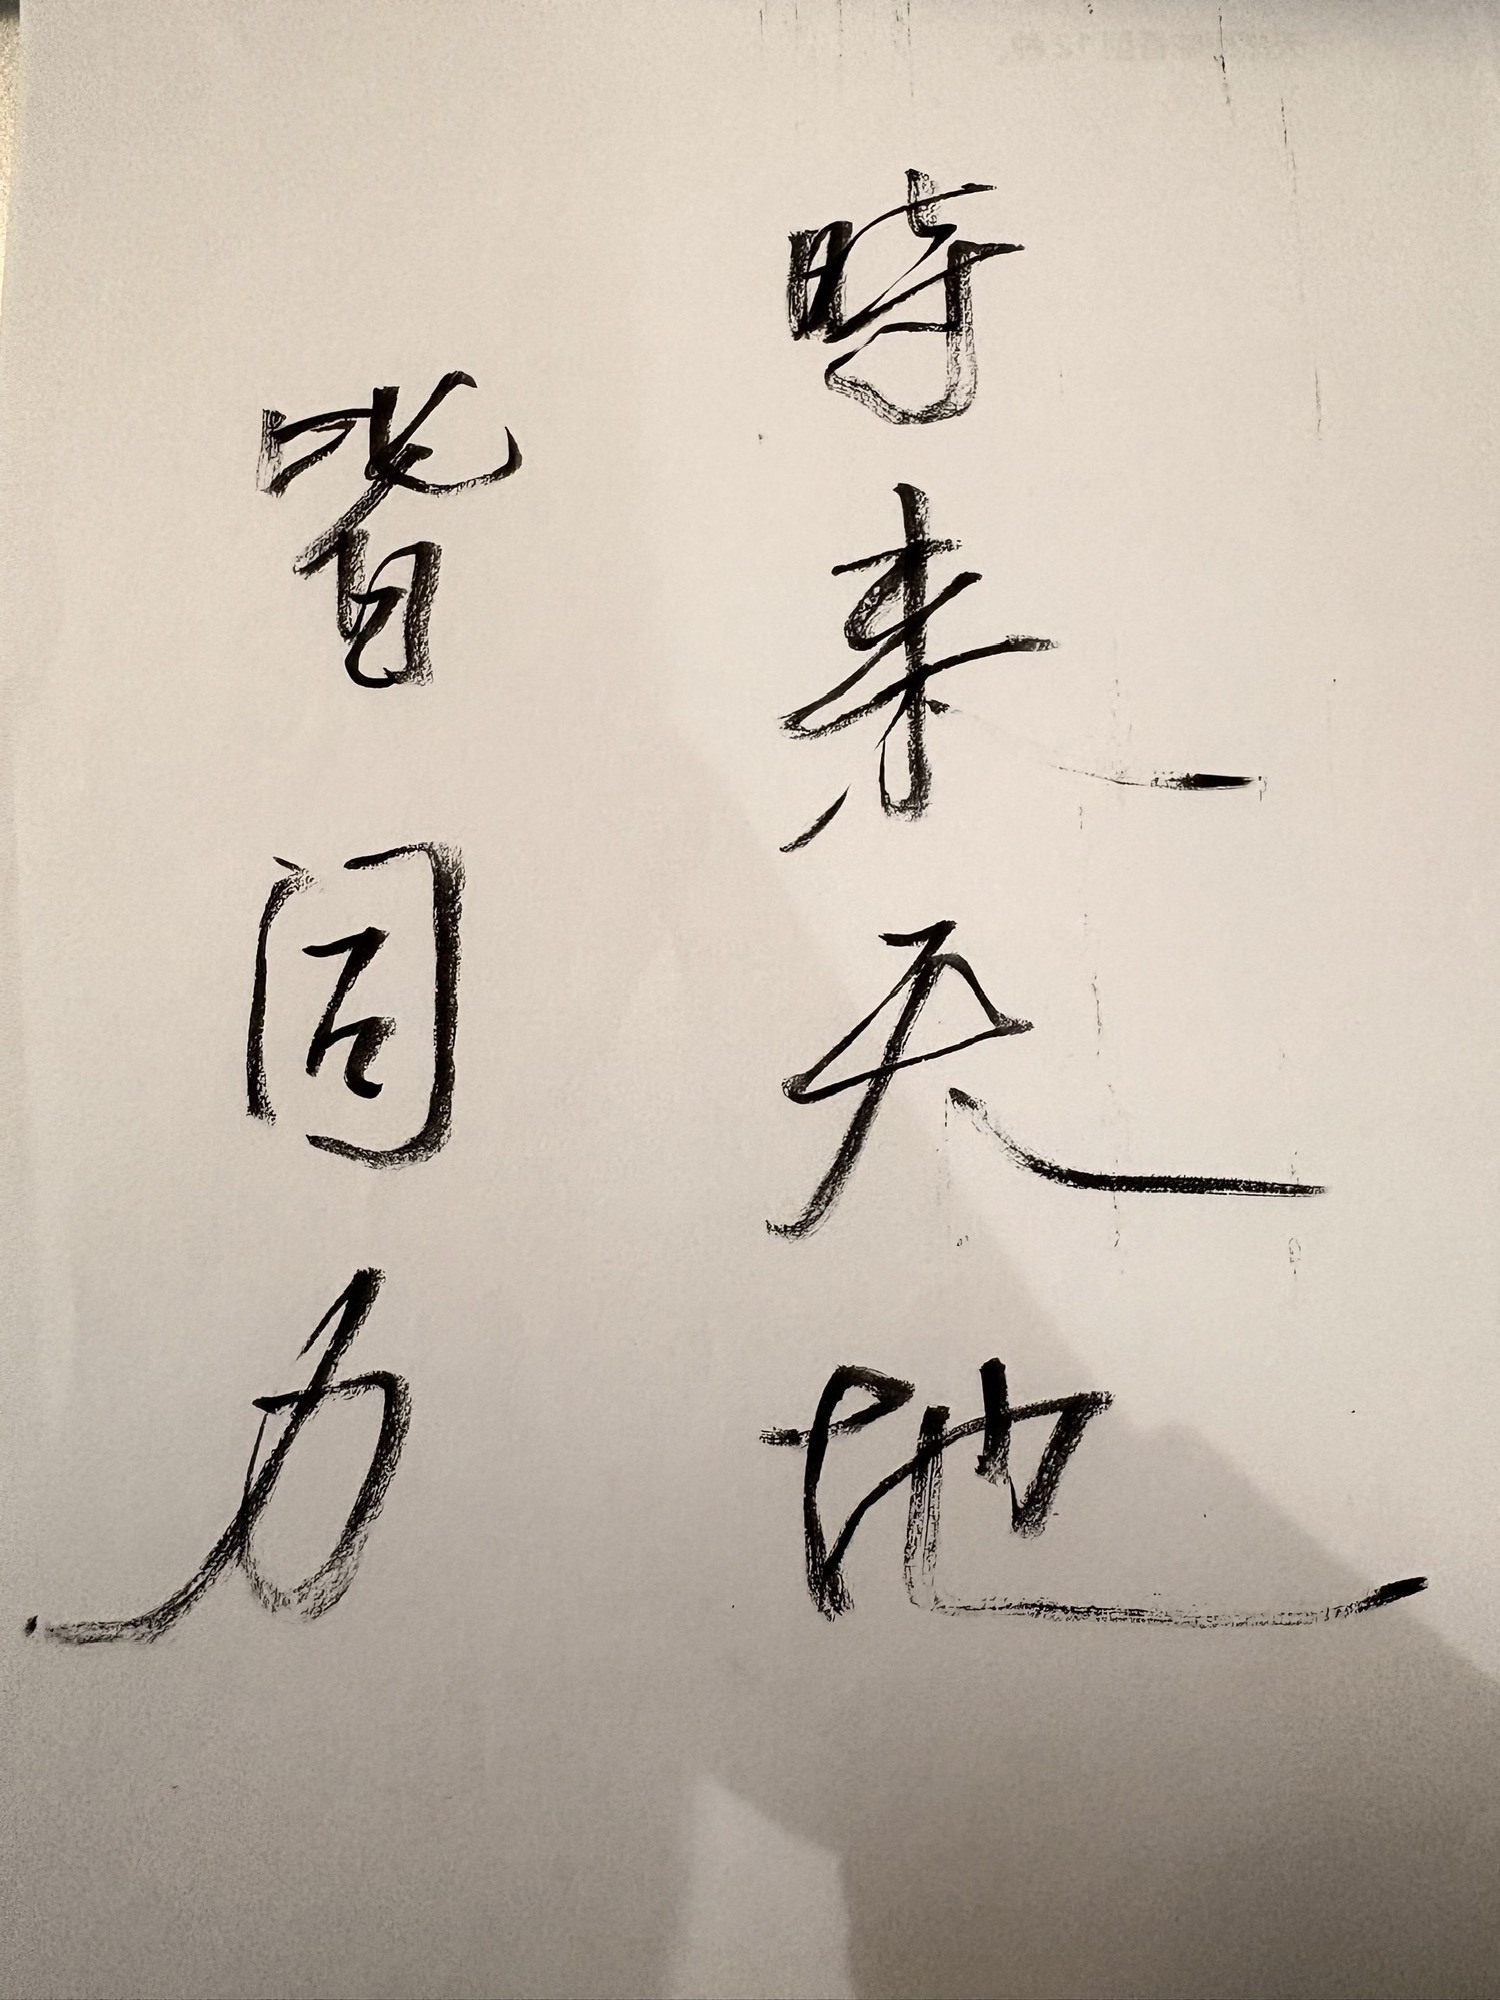 時来天地
皆同力